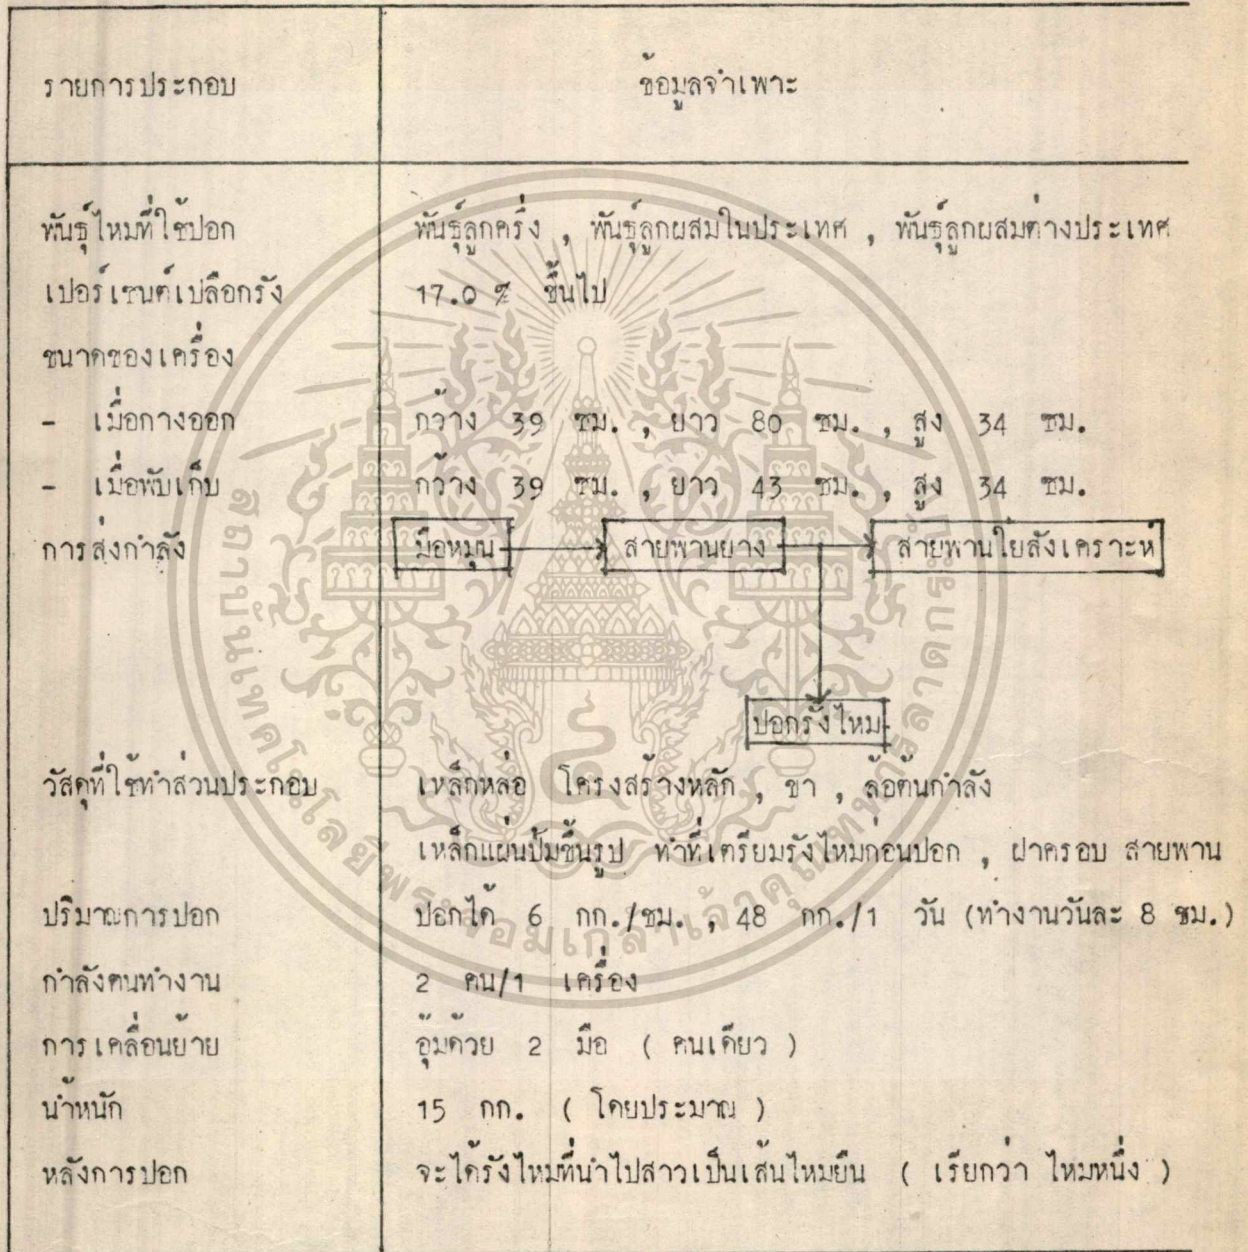 รายการประกอบ ข้อมูลจำเพาะ
พันธุ์ไหมที่ใช้ปอก พันธุ์ลูกครึ่ง , พันธุ์ลูกผสมในประเทศ , พันธุ์ลูกผสมต่างประเทศ
เปอร์เซนต์เปลือกรัง 17.0 % ขึ้นไป
ขนาดของเครื่อง
- เมื่อกางออก กว้าง 39 ซม. , ยาว 80 ซม. , สูง 34 ซม.
- เมื่อพับเก็บ กว้าง 39 ซม. , ยาว 43 ซม. , สูง 34 ซม.
การส่งกำลัง มือหมุน สายพานยาง สายพานใยสังเคราะห
ปอกรังไหม
วัสดุที่ใช้ทำส่วนประกอบ เหล็กหล่อ โครงสร้างหลัก , ขา , ล้อต้นกำลัง
เหล็กแผ่นปั้มขึ้นรูป ทำที่เตรียมรังไหมก่อนปอก , ฝาครอบ สายพาน
ปริมาณการปอก ปอกได้ 6 กก./ชม. , 48 กก./1 วัน (ทำงานวันละ 8 ชม.)
กำลังคนทำงาน 2 คน/1 เครื่อง
การเคลื่อนย้าย อุ้มด้วย 2 มือ ( คนเดียว )
น้ำหนัก 15 กก. ( โดยประมาณ )
หลังการปอก จะได้รังไหมที่นำไปสาวเป็นเส้นไหมยืน ( เรียกว่า ไหมหนึ่ง )
สถาบันเทคโนโลยีพระจอมเกล้าเจ้าคุณทหารลาดกระบัง